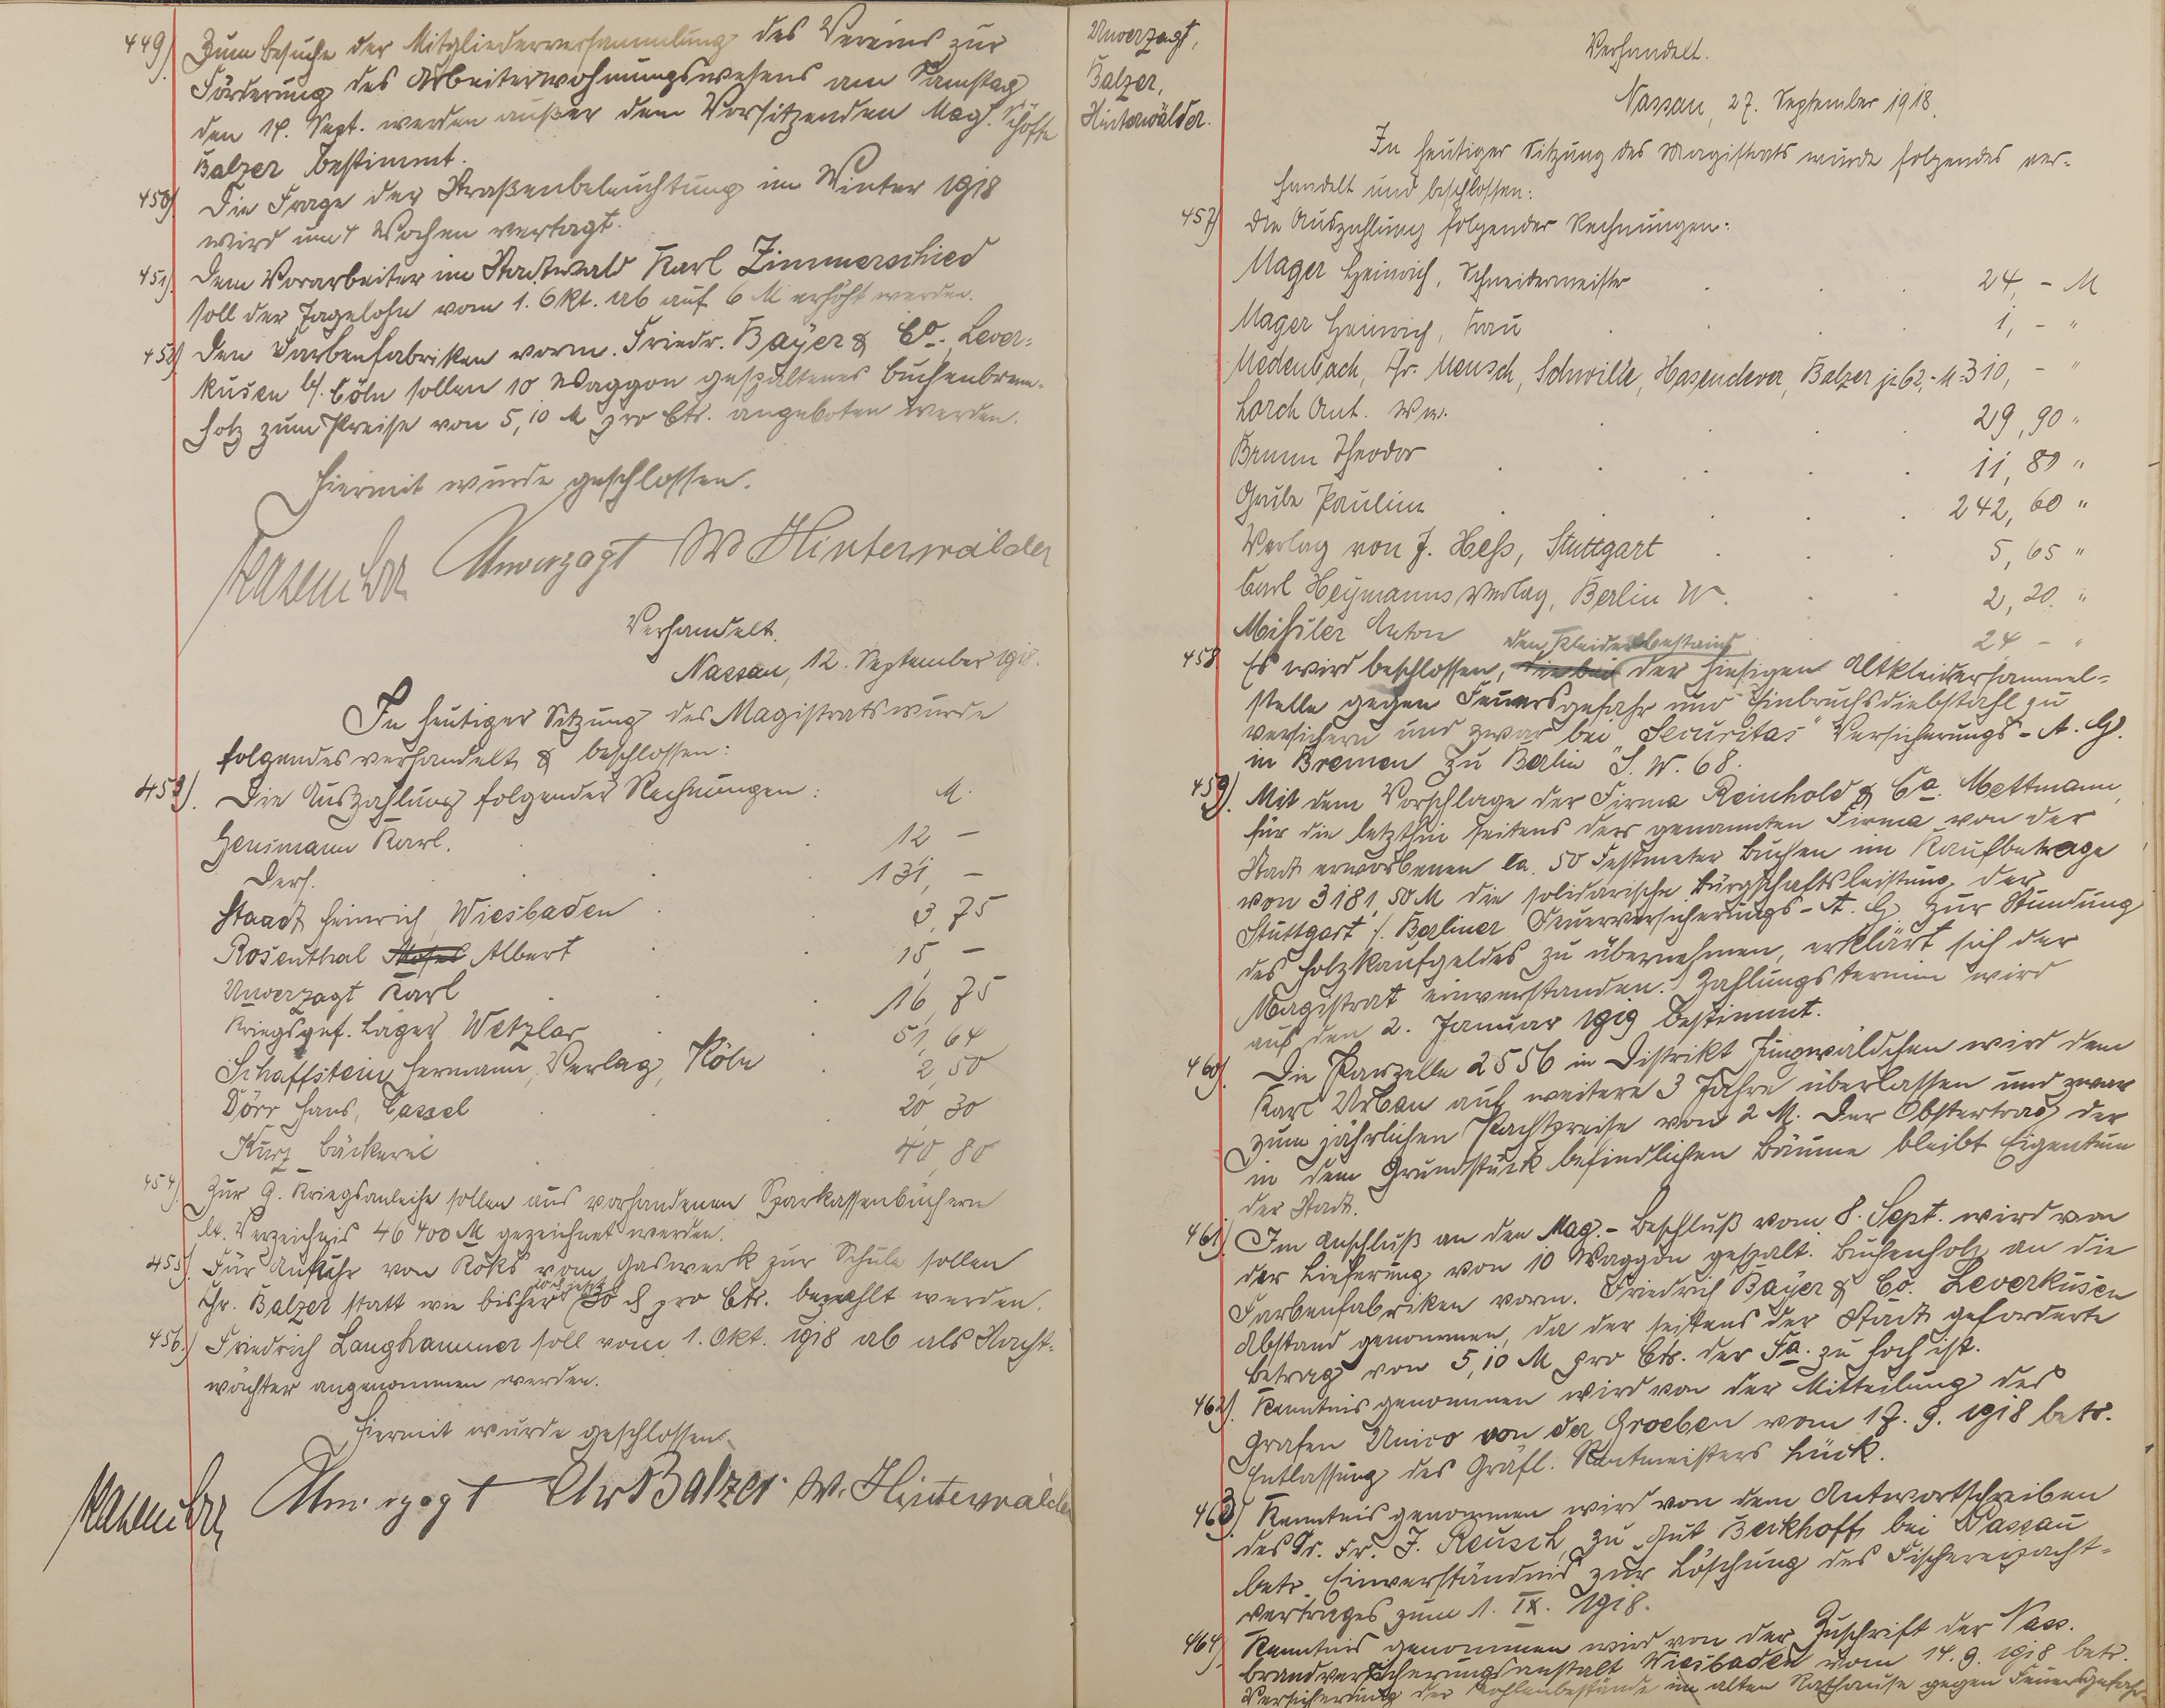 449) Zum Besuche der Mitgliederversammlung des Vereins zur
Förderung des Arbeiterwohnungswesens am Samstag
den 14. Sept. werden außer dem Vorsitzenden Mag. Schöffe
Balzer bestimmt.
450) Die Frage der Straßenbeleuchtung im Winter 1918
wird um 4 Wochen vertagt.
451) Dem Vorarbeiter im Stadtwald Karl Zimmerschied
soll der Tagelohn vom 1. Okt. ab auf 6 M erhöht werden.
452) Den Farbenfabriken vorm. Friedr. Bayer & Co. Lever-
kusen b/. Cöln sollen 10 Waggon gespaltenes Buchenbrenn-
holz zum Preise von 5,10 M pro Ctr. angeboten werden.
Hiermit wurde geschlossen.
Hasenclever Unverzagt W Hinterwälder
Verhandelt.
Nassau, 12. September 1918.
In heutiger Sitzung des Magistrats wurde
folgendes verhandelt & beschlossen:
453). Die Auszahlung folgender Rechnungen: M.
Heusmann Karl. 12 –
Ders. 131, –
Staadt Heinrich, Wiesbaden 3,75
Rosenthal Albert 15 –
Unverzagt Karl 16,75
Kriegsgef. Lager Wetzlar 51,64
Schaffstein Hermann, Verlag, Köln 2,50
Dörr Hans, Cassel 20,30
Kurz Bäckerei 40,80
454). Zur 9. Kriegsanleihe sollen aus vorhandenen Sparkassenbüchern
lt. Verzeichnis 46400 M gezeichnet werden.
455). Für Anfuhr von Koks vom Gaswerk zur Schule sollen
Chr. Balzer statt wie bisher 30 ₰ pro Ctr. bezahlt werden.
456.) Friedrich Langhammer soll vom 1. Okt. 1918 ab als Nacht-
wächter angenommen werden.
Hiermit wurde geschlossen.
Hasenclever Unverzagt Chr Balzer W. Hinterwälder
Unverzagt,
Balzer,
Hinterwälder.
Verhandelt.
Nassau, 27. September 1918.
In heutiger Sitzung des Magistrats wurde folgendes ver-
handelt und beschlossen:
457) Die Auszahlung folgender Rechnungen:
Mager Heinrich, Schneidermeister 24, – M
Mager Heinrich, Frau 1, – "
Medenbach, Chr. Mensch, Schwille, Hasenclever, Balzer je 62,- M 310, – "
Lorch Ant. Ww. 29,90 "
Brumm Theodor 11,80 "
Grube Pauline 242,60 "
Verlag von J. Heß, Stuttgart 5,65 "
Carl Heymanns Verlag, Berlin W. 2,20 "
Mißler Anton 24 – "
den Kleiderbestand
458 Es wird beschlossen, die bei der hiesigen Altkleidersammel-
stelle gegen Feuersgefahr und Einbruchsdiebstahl zu
versichern und zwar bei "Securitas" Versicherungs-A. G.
in Bremen zu Berlin S. W. 68.
459). Mit dem Vorschlage der Firma Reinhold & Co. Mettmann,
für die letzthin seitens der genannten Firma von der
Stadt erworbenen ca. 50 Festmeter Buchen im Kaufbetrage
von 3181,50 M die solidarische Bürgschaftsleistung der
Stuttgart /. Berliner Feuerversicherungs-A. G. zur Stundung
des Holzkaufgeldes zu übernehmen, erklärt sich der
Magistrat einverstanden. Zahlungstermin wird
auf den 2. Januar 1919 bestimmt.
460). Die Parzelle 2556 in Distrikt Jungwäldchen wird dem
Karl Urban auf weitere 3 Jahre überlassen und zwar
zum jährlichen Pachtpreise von 2 M. Der Obstertrag der
in dem Grundstück befindlichen Bäume bleibt Eigentum
der Stadt.
461). Im Anschluß an den Mag.-Beschluß vom 8. Sept. wird von
der Lieferung von 10 Waggon gespalt. Buchenholz an die
Farbenfabriken vorm. Friedrich Bayer & Co. Leverkusen
Abstand genommen, da der seitens der Stadt geforderte
Betrag von 5,10 M pro Ctr. der Fa. zu hoch ist.
462). Kenntnis genommen wird von der Mitteilung des
Grafen Unico von der Groeben vom 17. 9. 1918 betr.
Entlassung des Gräfl. Rentmeisters Lück.
463) Kenntnis genommen wird von dem Antwortschreiben
des Dr. Fr. J. Reusch, zu Gut Berkhoff bei Nassau
betr. Einverständnis zur Löschung des Fischereipacht-
vertrages zum 1. IX. 1918.
464) Kenntnis genommen wird von der Zuschrift der Nass.
Brandversicherungsanstalt Wiesbaden vom 14. 9. 1918 betr.
Versicherung der Kohlenbestände im alten Rathause gegen Feuersgefahr